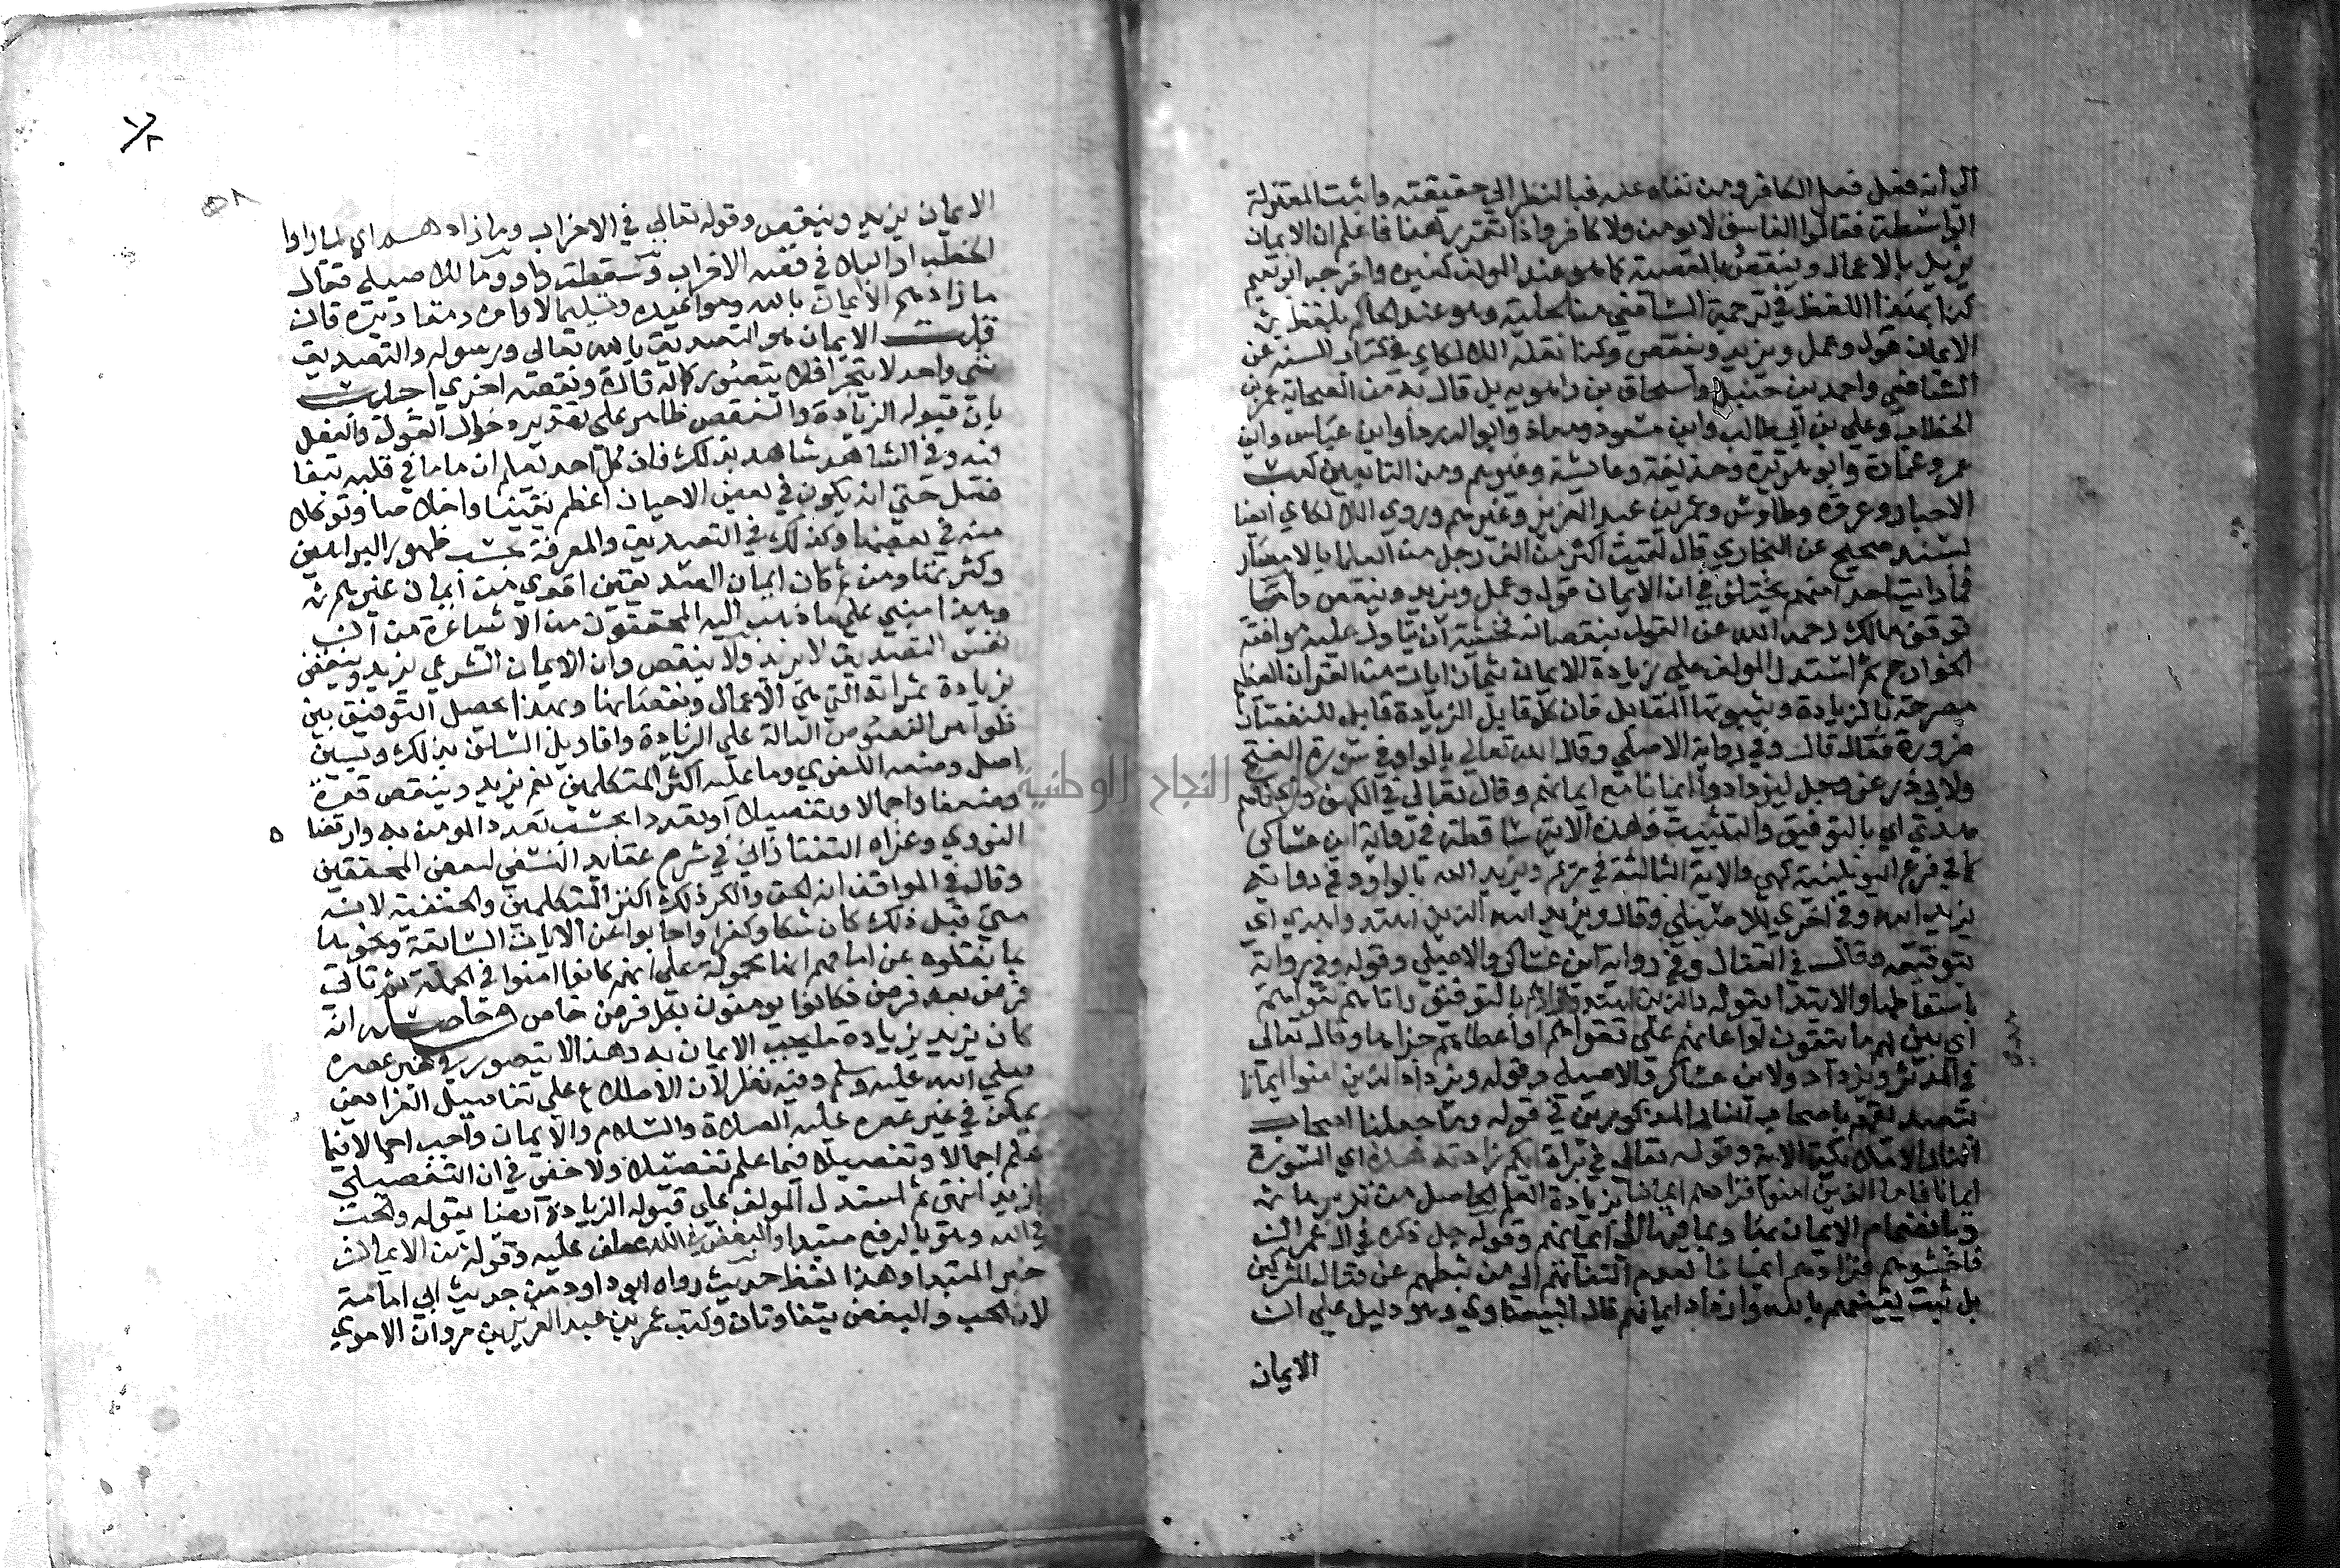 الي انه فعل فعل الكافر ومن نفاه عنه فبالنظر الي حقيقته واثبت المعتزلة
الواسطة فقالوا الفاسق لا مومن ولا كافر واذا تقرر هنا فاعلم ان الايمان
يزيد بالاعمال وينقص بالمعصية كما هو عند المولف كغيره واخرجه ابو نعيم
كذا بهذا اللفظ في ترجمة الشافعي من الحلية وهو عند الحاكم بلفظ
الايمان قول وعمل ويزيد وينقص وكذا نقله اللالكاي في كتاب السنة عن
الشافعي واحمد بن حنبل واسحاق بن راهويه بل قال به من الصحابة عمر بن
الخطاب وعلي بن ابي طالب وابن مسعود ومعاذ وابو الدردا وابن عباس وابن
عمر وعمار وابو هريرة وحذيفة وعايشة وغيرهم ومن التابعين كعب
الاحبار وعروة وطاوس وعمر بن عبد العزيز وغيرهم وروي اللالكاي ايضا
بسند صحيح عن البخاري قال لقيت اكثر من الف رجل من العلما بالامصار
فما رايت احدا منهم يختلف في ان الايمان قول وعمل ويزيد وينقص واما
توقف مالك رحمه الله عن القول بنقصانه فخشية ان يتاول عليه موافقة
الخوارج ثم استدل المولف علي زيادة الايمان بثمان ايات من القران العظيم
مصرحة بالزيادة وبثبوتها المقابل فان كل قابل للزيادة قابل للنقصان
ضرورة فقال قال وفي رواية الاصيلي وقال الله تعالي بالواو في سورة الفتح
ولابي ذر عز وجل ليزدادوا ايمانا مع ايمانهم وقال تعالي في الكهف وزدناهم
هدي اي بالتوفيق والتثبيت وهذه الاية ساقطة في رواية ابن عساكر
كما في فرع اليونينية كهي والاية الثالثة في مريم ويزيد الله بالواو وفي رواية
يزيد الله وفي اخري للاصيلي وقال ويزيد الله الذين اهتدوا هدي اي
بتوفيقه وقال في القتال وفي رواية ابن عساكر والاصيلي وقوله وفي رواية
باسقاطها والابتدا بقوله والذين اهتدوا زادهم بالتوفيق واتاهم تقواهم
اي بين لهم ما يتقون او اعانهم علي تقواهم او اعطاهم جزاها وقال تعالي
في المدثر ويزداد ولابن عساكر والاصيلي وقوله ويزداد الذين امنوا ايمانا
بتصديقهم باصحاب النار المذكورين في قوله وما جعلنا اصحاب
النار الا ملايكة الاية وقوله تعالي في براة ايكم زادته هذه اي السورة
ايمانا فاما الذين امنوا فزادتهم ايمانا بزيادة العلم الحاصل من تدبرها
وبانضمام الايمان بها وبما فيها الي ايمانهم وقوله جل ذكره في ال عمران
فاخشوهم فزادهم ايمانا لعدم التفاتهم الي من ثبطهم عن قتال المشركين
بل ثبت يقينهم بالله وازداد ايمانهم قال البيضاوي وهو دليل علي ان
الايمان
الايمان يزيد وينقص وقوله تعالي في الاحزاب وما زادهم اي لما راوا
الخطب او البلا في قصة الاحزاب وسقطت واو وما للاصيلي فقال
ما زادهم الا ايمانا بالله ومواعيده وتسليما لاوامره ومقاديره فان
قلت الايمان هو التصديق بالله تعالي وبرسوله والتصديق
شي واحد لا يتجزا فلا يتصور كماله تارة ونقصه اخري اجيب
بان قبوله الزيادة والنقص ظاهر علي تقدير دخول القول والفعل
فيه وفي الشاهد شاهد بذلك فان كل احد يعلم ان ما في قلبه يتفا
ضل حتي انه يكون في بعض الاحيان اعظم يقينا واخلاصا وتوكلا
منه في بعضها وكذلك في التصديق والمعرفة بحسب ظهور البراهين
وكثرتها ومن ثم كان ايمان الصديقين اقوي من ايمان غيرهم
وهذا مبني علي ما ذهب اليه المحققون من الاشاعرة من ان
نفس التصديق لا يزيد ولا ينقص وان الايمان الشرعي يزيد وينقص
بزيادة ثمراته التي هي الاعمال ونقصانها وبهذا يحصل التوفيق بين
ظواهر النصوص الدالة علي الزيادة واقاويل السلف بذلك وبين
اصل وضعه اللغوي وما عليه اكثر المتكلمين نعم يزيد وينقص قوة
وضعفا واجمالا وتفصيلا او تعددا بحسب تعدد المومن به وارتضاه
النووي وعزاه التفتازاني في شرح عقايد النسفي لبعض المحققين
وقال في المواقف انه الحق وانكر ذلك اكثر المتكلمين والحنفية لانه
متي قبل ذلك كان شكا وكفرا واجابوا عن الايات السابقة ونحوها
بما نقلوه عن امامهم انها محمولة علي انهم كانوا امنوا في الجملة ثم ياتي
فرض بعد فرض فكانوا يومنون بكل فرض خاص وحاصله انه
كان يزيد بزيادة ما يجب الايمان به وهذا لا يتصور في غير عصره
صلي الله عليه وسلم وفيه نظر لان الاطلاع علي تفاصيل الفرايض
يمكن في غير عصره عليه الصلاة والسلام والايمان واجب اجمالا فيما
علم اجمالا وتفصيلا فيما علم تفصيلا ولا خفي في ان التفصيلي
ازيد انتهي ثم استدل المولف علي قبول الزيادة ايضا بقوله والحب
في الله وهو بالرفع مبتدا والبغض في الله عطف عليه وقوله من الايمان
خبر المبتدا وهذا لفظ حديث رواه ابو داود من حديث ابي امامة
لان الحب والبغض يتفاوتان وكتب عمر بن عبد العزيز بن مروان الاموي